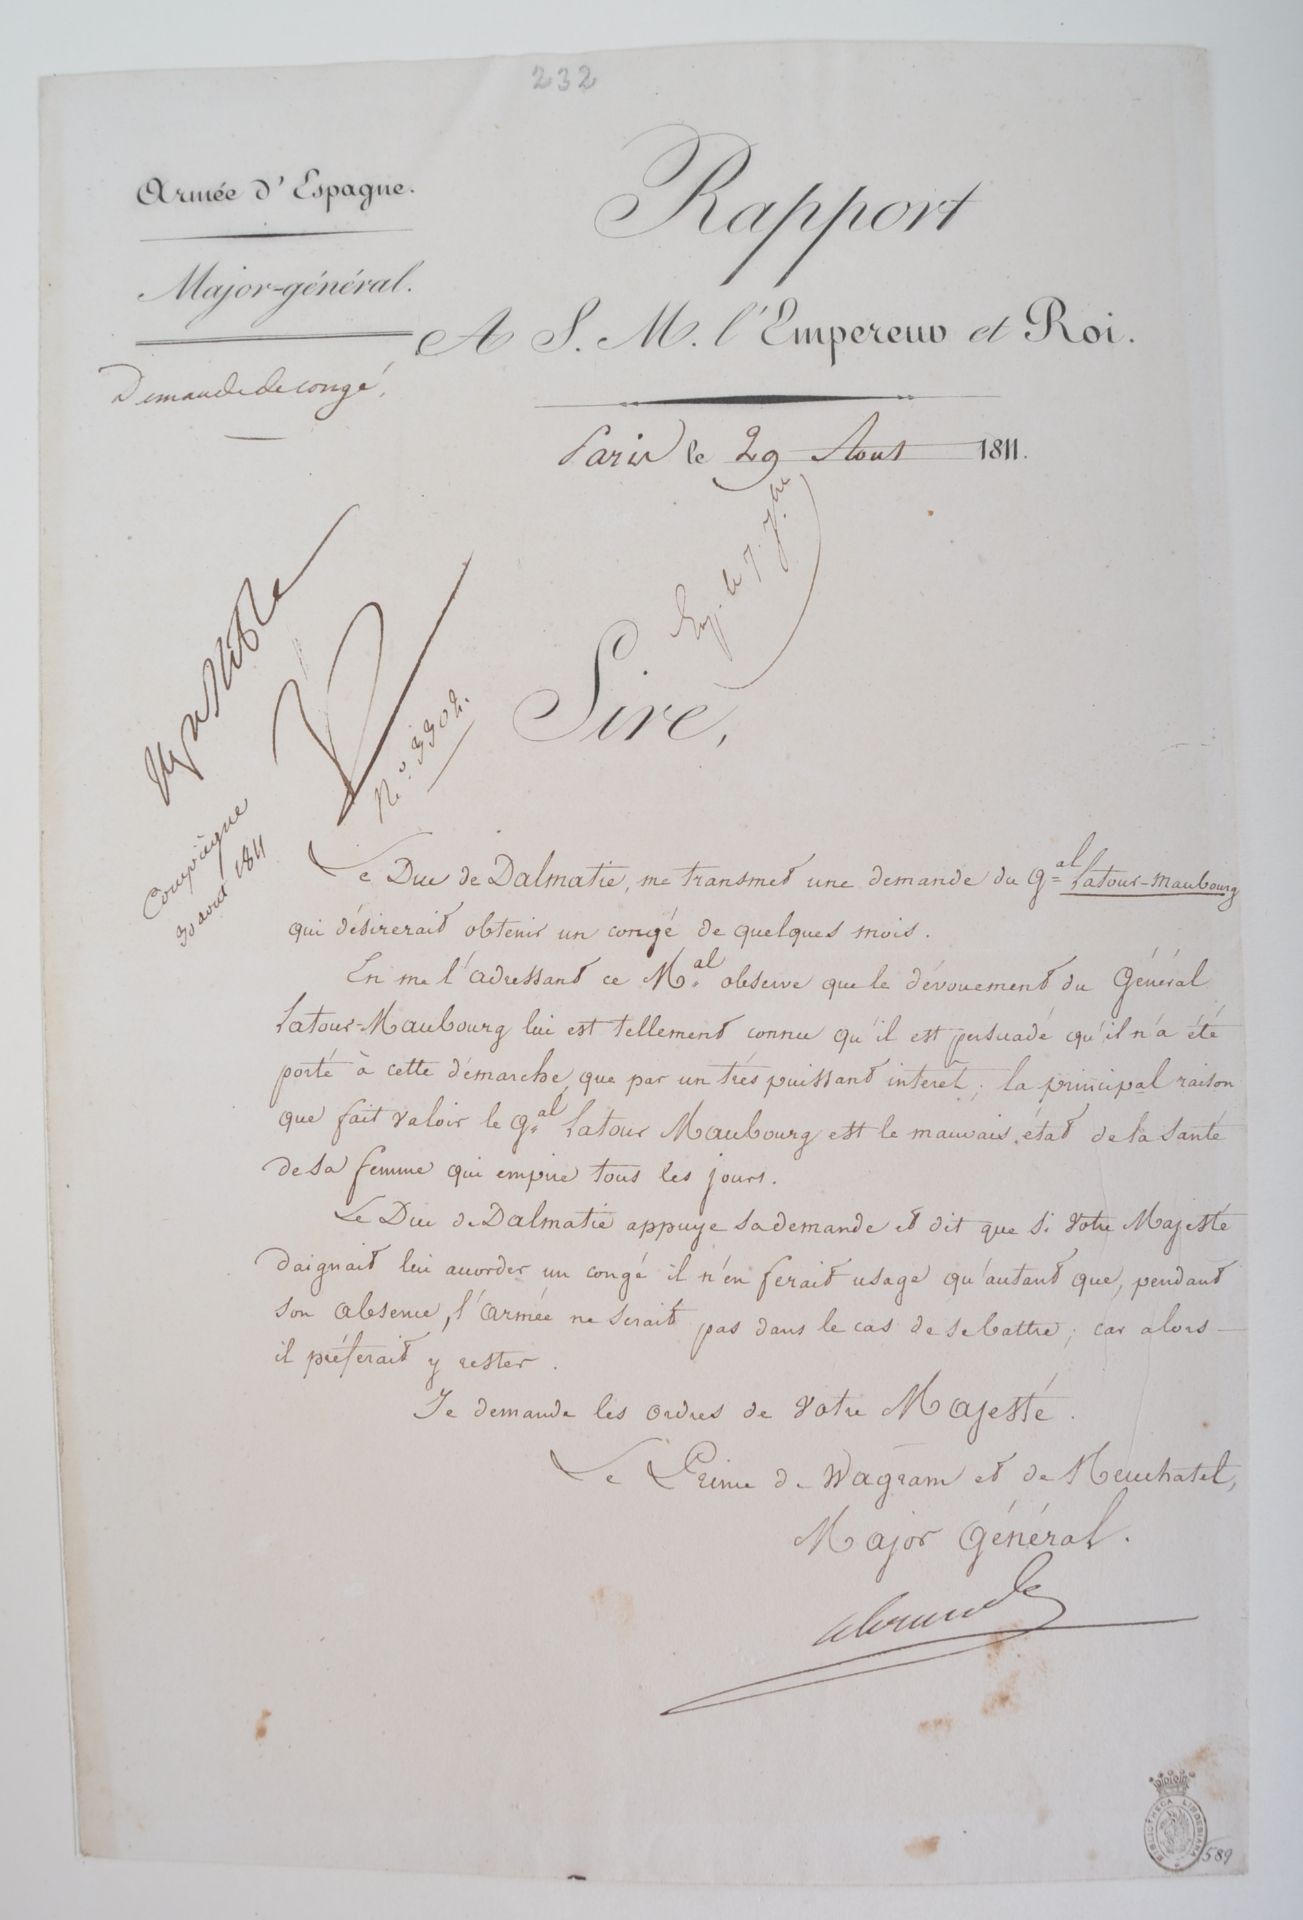 232
Armée d'Espagne.
Major-général.
Demande de congé,
Rapport
A S. M. l'Empereur et Roi.
Paris le 29 Aout 1811.
le 7. 7.bre
N.o 3302.
Compiègne
30 aout 1811
Sire,
Le Duc de Dalmatie, me transmet une demande du G.al Latour-Maubourg
qui désirerait obtenir un congé de quelques mois.
En me l'adressant ce M.al observe que le dévouement du Général
Latour-Maubourg lui est tellement connu qu'il est persuadé qu'il n'a été
porté à cette démarche que par un trés puissant interet; la principal raison
que fait valoir le g.al Latour Maubourg est le mauvais état de la santé
de sa femme qui empire tous les jours.
Le Duc de Dalmatie appuye sa demande et dit que si Votre Majesté
daignait lui accorder un congé il n'en ferait usage qu'autant que, pendant
son absence, l'armée ne serait pas dans le cas de se battre; car alors
il préferait y rester.
Je demande les ordres de Votre Majesté.
Le Prince de Wagram et de Neuchatel,
Major Général.
BIBLIOTHECA LINDESIANA
589